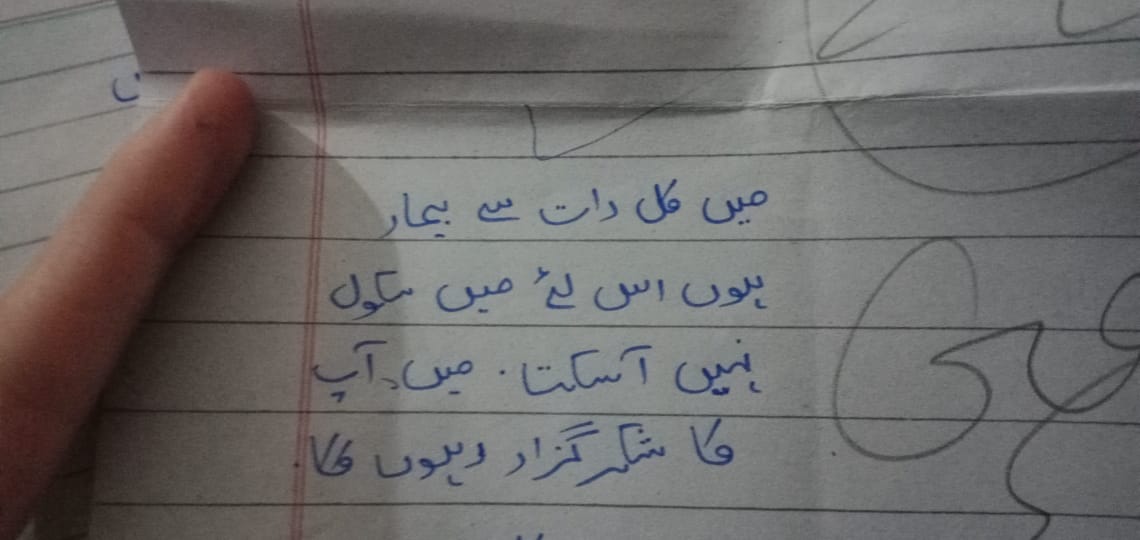 میں کل رات سے بیمار
ہوں اس لئے میں سکول
نہیں آسکتا۔ میں آپ
کا شکرگزار رہوں گا۔